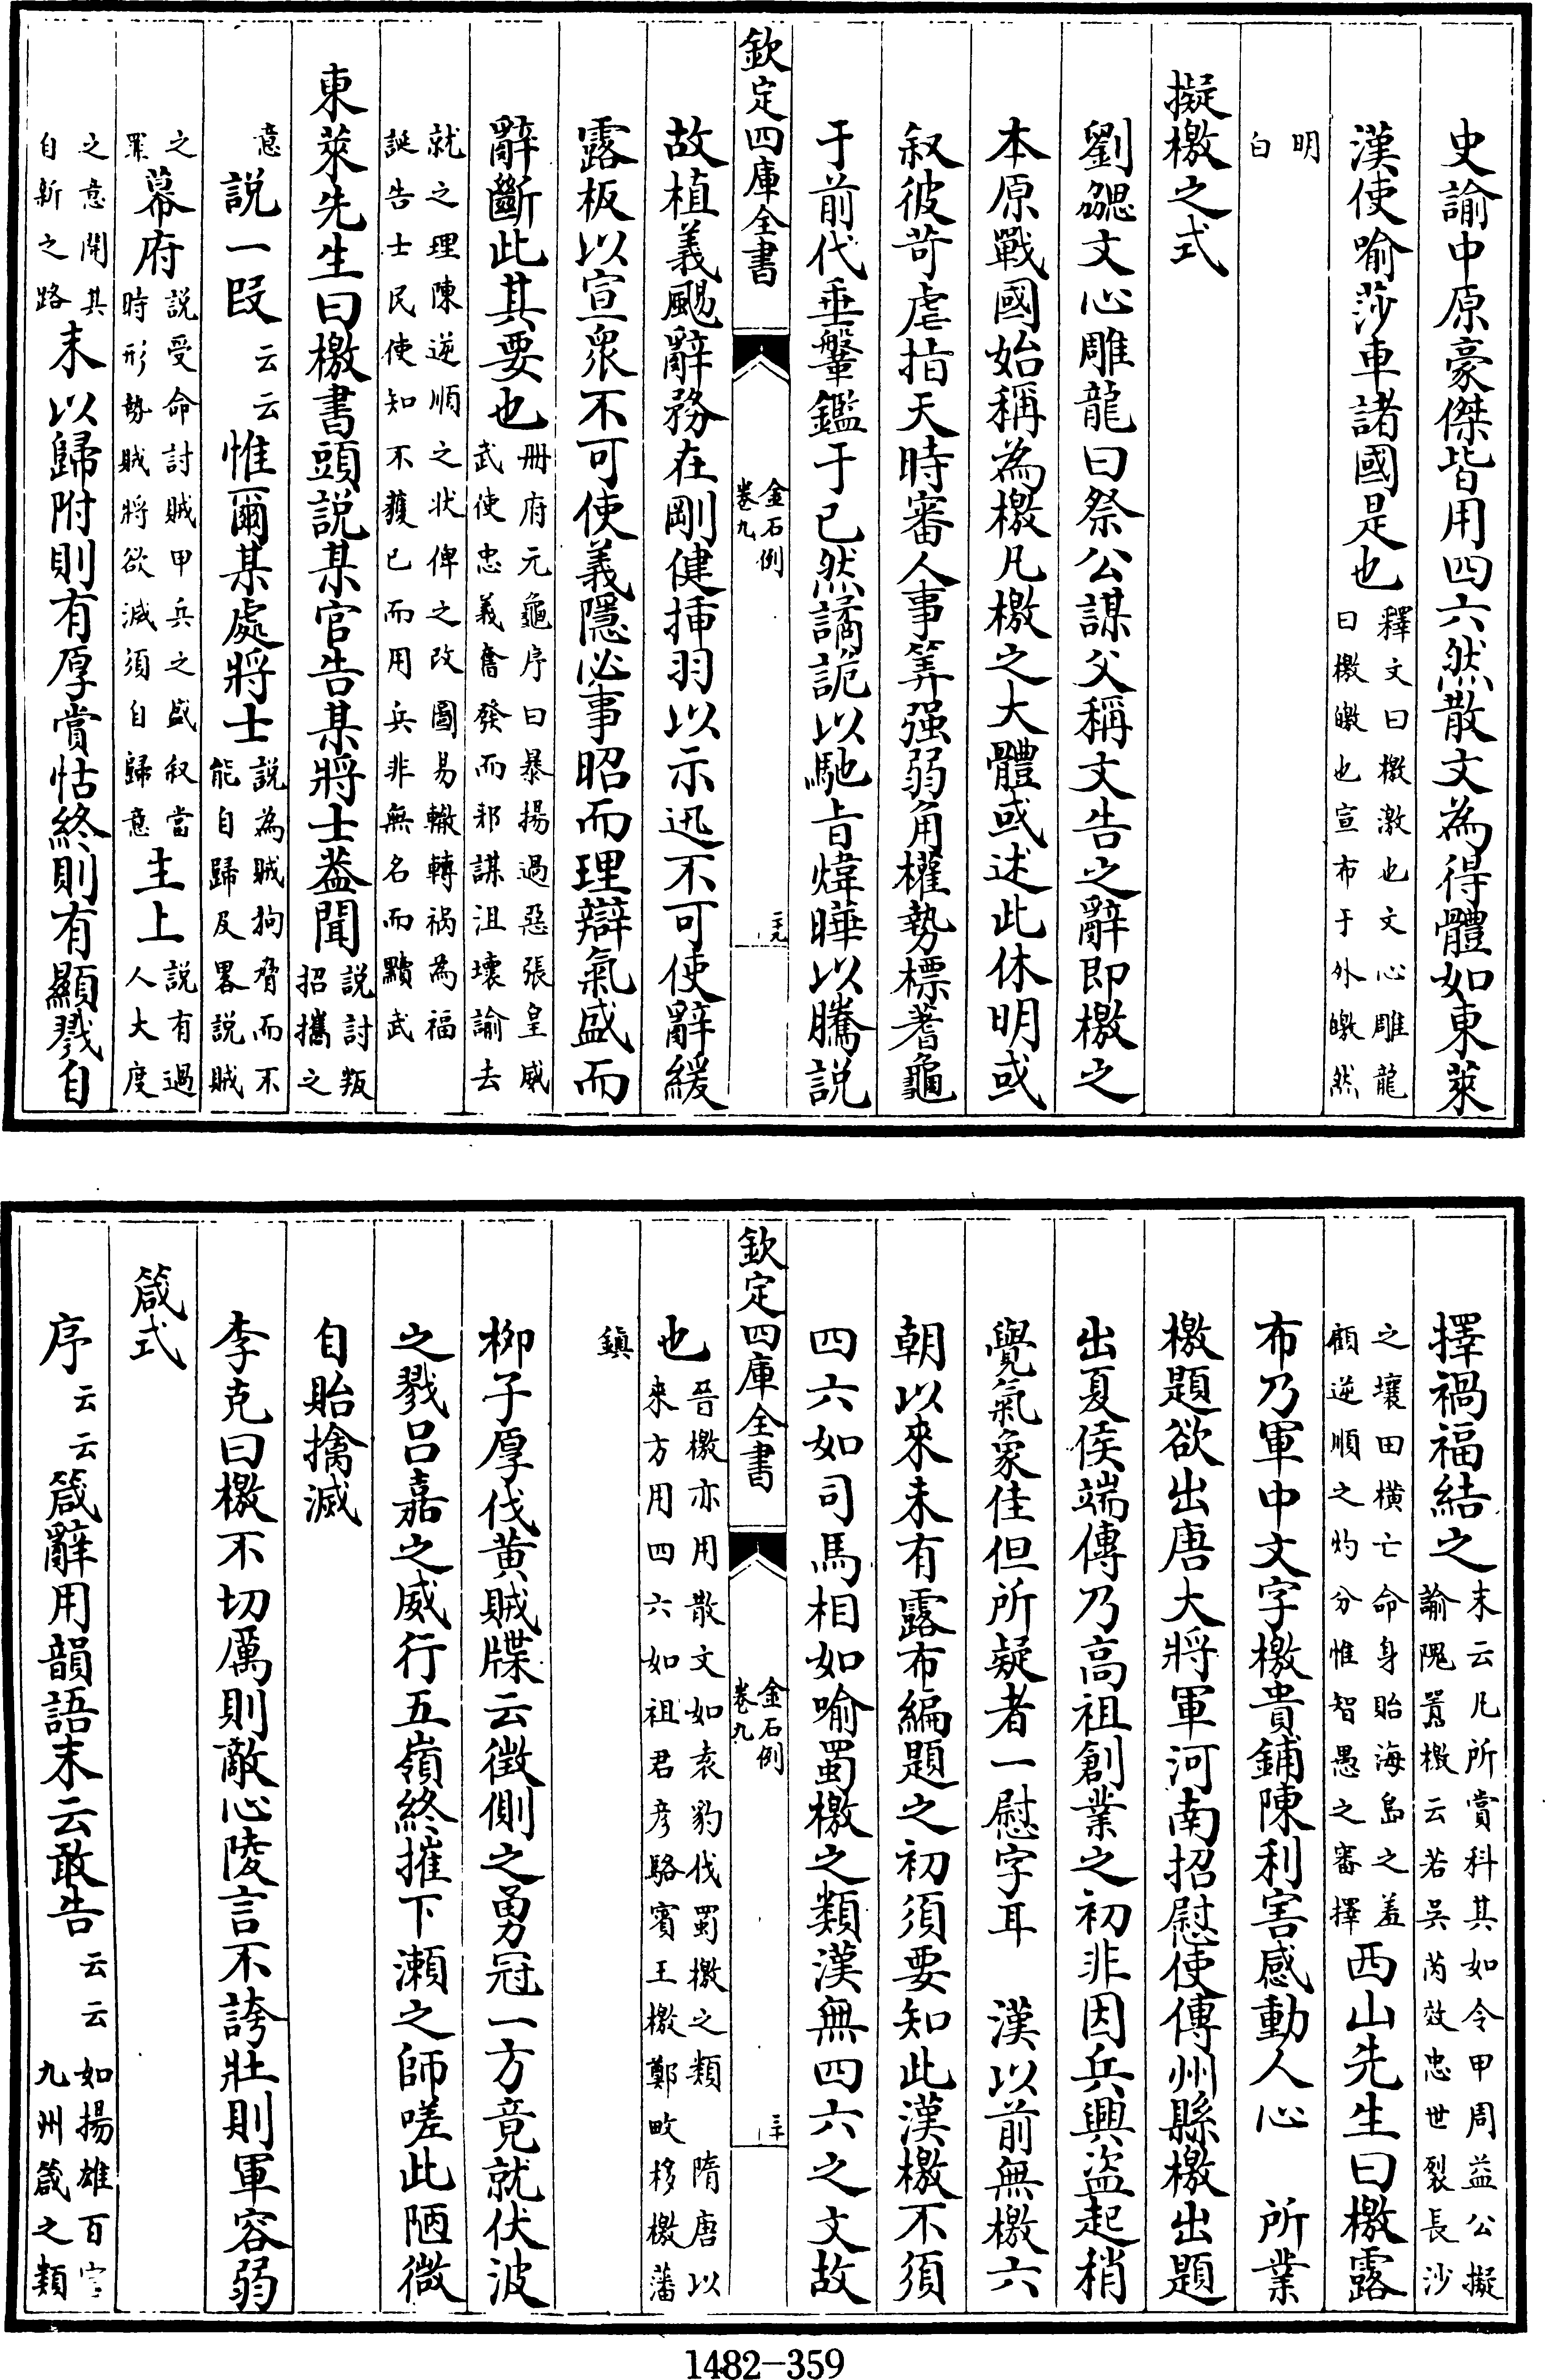 史諭中原豪傑皆用四六然散文為得體如東萊
漢使喻莎車諸國是也釋文曰檄激也文心雕龍曰檄皦也宣布于外皦然
明白
擬檄之式
劉勰文心雕龍曰祭公謀父稱文告之辭即檄之
本原戰國始稱為檄凡檄之大體或述此休明或
叙彼苛虐指天時審人事筭强弱角權勢標蓍龜
于前代垂鞶鑑于已然譎詭以馳旨煒曄以騰説
欽定四庫全書 金石例 卷九 二十九
故植義颺辭務在剛健揷羽以示迅不可使辭緩
露板以宣衆不可使義隱必事昭而理辯氣盛而
辭斷此其要也冊府元龜序曰暴揚過惡張皇威武使忠義奮發而邪謀沮壞諭去
就之理陳逆順之状俾之改圖易轍轉禍為福誕告士民使知不獲已而用兵非無名而黷武
東萊先生曰檄書頭説某官告某將士葢聞説討叛招攜之
意説一段云云惟爾某處將士説為賊拘脅而不能自歸及畧説賊
之罪幕府説受命討賊甲兵之盛叙當時形勢賊將欲滅須自歸意主上説有過人大度
之意開其自新之路末以歸附則有厚賞怙終則有顯戮自
擇禍福結之末云凡所賞科其如令甲周益公擬諭隗囂檄云若吳芮效忠世裂長沙
之壤田横亡命身貽海島之羞顧逆順之灼分惟智愚之審擇西山先生曰檄露
布乃軍中文字檄貴鋪陳利害感動人心 所業
檄題欲出唐大將軍河南招慰使傳州縣檄出題
出夏侯端傳乃高祖創業之初非因兵興盜起稍
覺氣象佳但所疑者一慰字耳 漢以前無檄六
朝以來未有露布編題之初須要知此漢檄不須
四六如司馬相如喻蜀檄之類漢無四六之文故
欽定四庫全書 金石例 卷九 三十
也晉檄亦用散文如袁豹伐蜀檄之類 隋唐以來方用四六如祖君彦駱賓王檄鄭畋移檄藩
鎮
栁子厚伐黄賊牒云徴側之勇冠一方竟就伏波
之戮呂嘉之威行五嶺終摧下瀬之師嗟此陋微
自貽擒滅
李克曰檄不切厲則敵心陵言不誇壯則軍容弱
箴式
序云云箴辭用韻語末云敢告云云如揚雄百官九州箴之類
1482-359